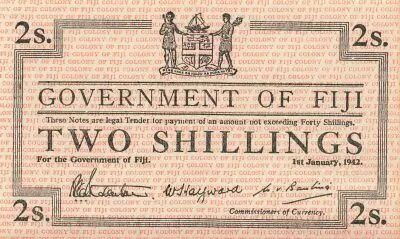 2s. 2s.
GOVERNMENT OF FIJI
These Notes are legal Tender for payment of an amount not exceeding Forty Shillings.
TWO SHILLINGS
For the Government of Fiji. 1st January, 1942.
W S Hayward
Commissioners of Currency.
2s. 2s.
COLONY OF FIJI COLONY OF FIJI COLONY OF FIJI